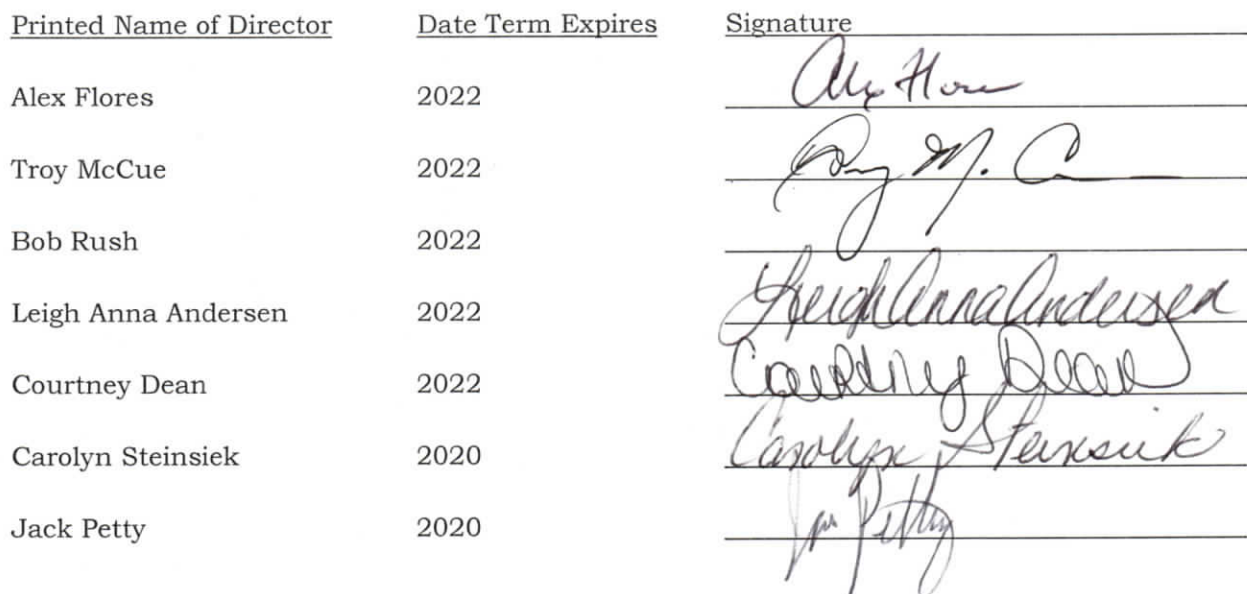 Printed Name of Director Date Term Expires Signature
Alex Flores 2022 Alex Flores
Troy McCue 2022 Troy M. C
Bob Rush 2022
Leigh Anna Andersen 2022 Leigh Anna Andersen
Courtney Dean 2022 Courtney Dean
Carolyn Steinsiek 2020 Carolyn Steinsiek
Jack Petty 2020 Petty